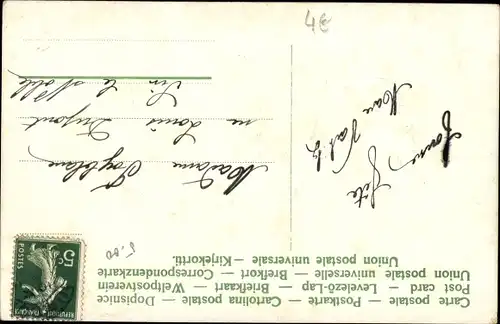 Carte postale — Postkarte — Cartolina postale — Dopisnice
Post card — Levelező-Lap — Briefkaart — Weltpostverein
Union postale universelle — Brefkort — Correspondenzkarte
Union postale universale — Kirjekortti
Bonne Fête
Madame
rue Louis Dupont
Sin le Noble
5c
POSTES
REPUBLIQUE FRANÇAISE
4€
5,00